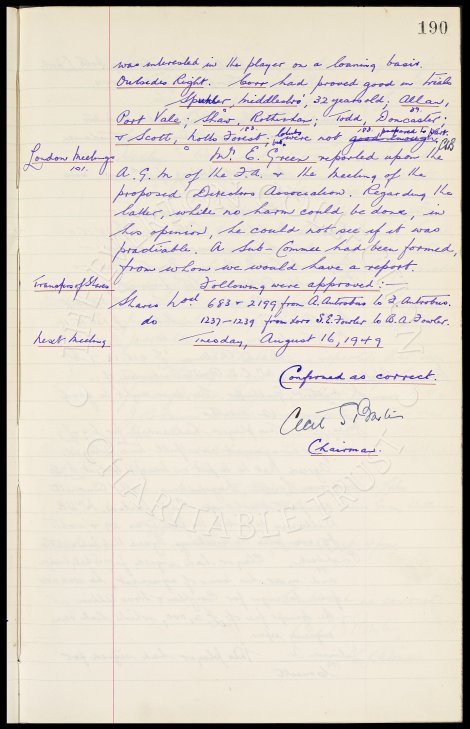 190
was interested in the player on a loaning basis.
Outsides Right. Corr had proved good in trials
Spuhler, Middlesbro', 32 years old; Allan,
Port Vale; Shaw, Rotherham; Todd, Doncaster;
& Scott, Notts Forest; were not good enough;
prepared to
London Meetings
101.
Mr. E. Green reported upon the
A.G.M. of the F.A. & the Meeting of the
proposed Directors Association. Regarding the
latter, while no harm could be done, in
his opinion, he could not see if it was
practicable. A Sub-Commee had been formed,
from whom we would have a report.
Transfers of Shares
Following were approved:-
Shares Nos 683 & 2199 from A. Antrobus to F. Antrobus.
do 1237-1239 from S.E. Fowler to B.A. Fowler.
Next Meeting
Tuesday, August 16, 1949
Confirmed as correct.
Chairman.
CHARITABLE TRUST